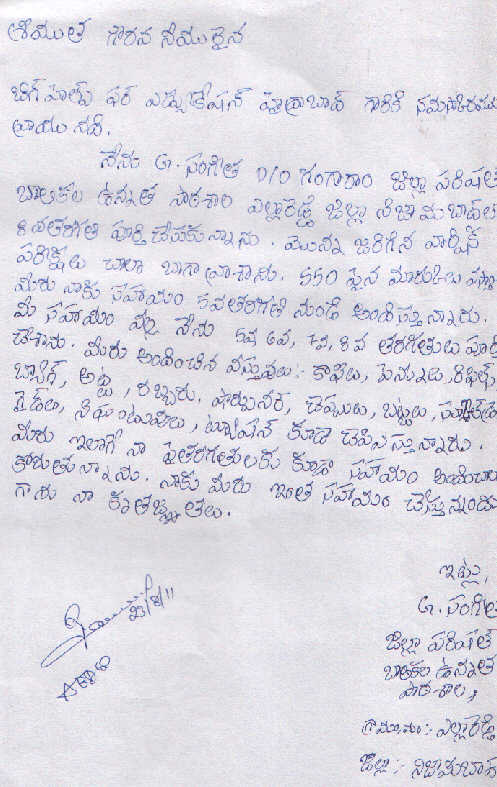 శ్రీయుత గౌరవ నీయులైన
బిగ్ హెల్ప్ ఫర్ ఎడ్యుకేషన్ హైద్రాబాద్ గారికి నమస్కరించి
వ్రాయునది.
నేను G. సంగీత D/O గంగారాం జిల్లా పరిషత్
బాలికల ఉన్నత పాఠశాల ఎల్లారెడ్డి జిల్లా నిజామబాద్‌లో
8వతరగతి పూర్తి చేసుకున్నాను. మొన్న జరిగిన వార్షిక
పరీక్షలు చాలా బాగా వ్రాశాను. 550 పైన మార్కులు వస్తా
మీరు నాకు సహాయం 5వతరగతి నుండి అందిస్తున్నారు.
మీ సహాయం వల్ల నేను 5వ, 6వ, 7వ, 8వ తరగతులు పూర్తి
చేశాను. మీరు అందించిన వస్తువులు:- కాపీలు, పెన్నులు, రిఫిల్స్,
బ్యాగ్, అట్ట, రబ్బరు, షార్పునర్, చెప్పులు, బట్టలు,
గైడులు, నిఘంటువులు, ట్యూషన్ కూడా చెప్పిస్తున్నారు.
మీరు ఇలాగే నా పైతరగతులకు కూడా సహాయం అందించాల
కోరుతున్నాను. నాకు మీరు ఇంత సహాయం చేస్తున్నందు
గాను నా కృతజ్ఞతలు.
ఇట్లు,
G. సంగీత
జిల్లా పరిషత్
బాలికల ఉన్నత
పాఠశాల,
గ్రామం:- ఎల్లారెడ్డి
జిల్లా:- నిజామబాద్
23/8/11